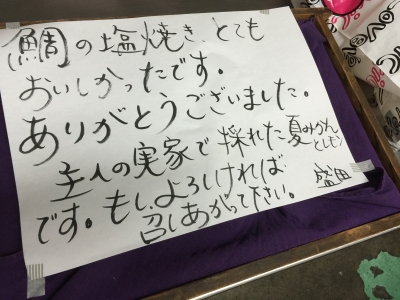 鯛の塩焼き、とても
おいしかったです。
ありがとうございました。
主人の実家で採れた夏みかん
とレモン
です。もし、よろしければ
召しあがって下さい。
盛田